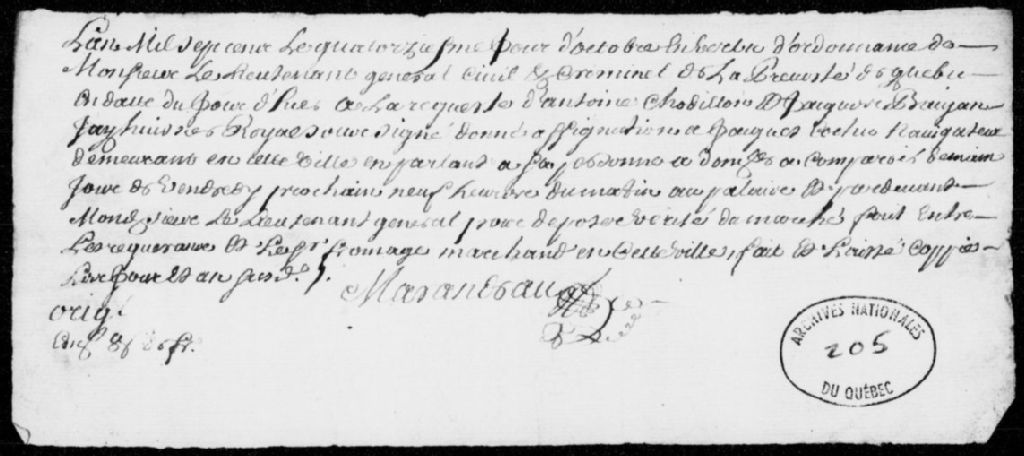 Lan Mil sept cent Le quatorziesme Jour d'octobre En vertu d'ordonnance de
Monsieur Le Lieutenant general Civil & Criminel de La Prevosté de quebec
En datte du Jour d'hier a La requeste d'antoine Chodillon & Jacques
Jay huissier Royal sous signé donné assignation a Jacques navigateur
demeurant en cette ville en parlant a sa personne a domlle a comparoir demain
Jour de vendredy prochain neuf heures du matin au palaire et pardevant
Mondsieur Le Lieutenant general pour deposer verité du marché fait Entre
Les requerans et Le Sr fromage marchand en cette ville, fait et Laissé coppie
Les Jour et an susd.
Marandeau
orig.
ARCHIVES NATIONALES
205
DU QUÉBEC